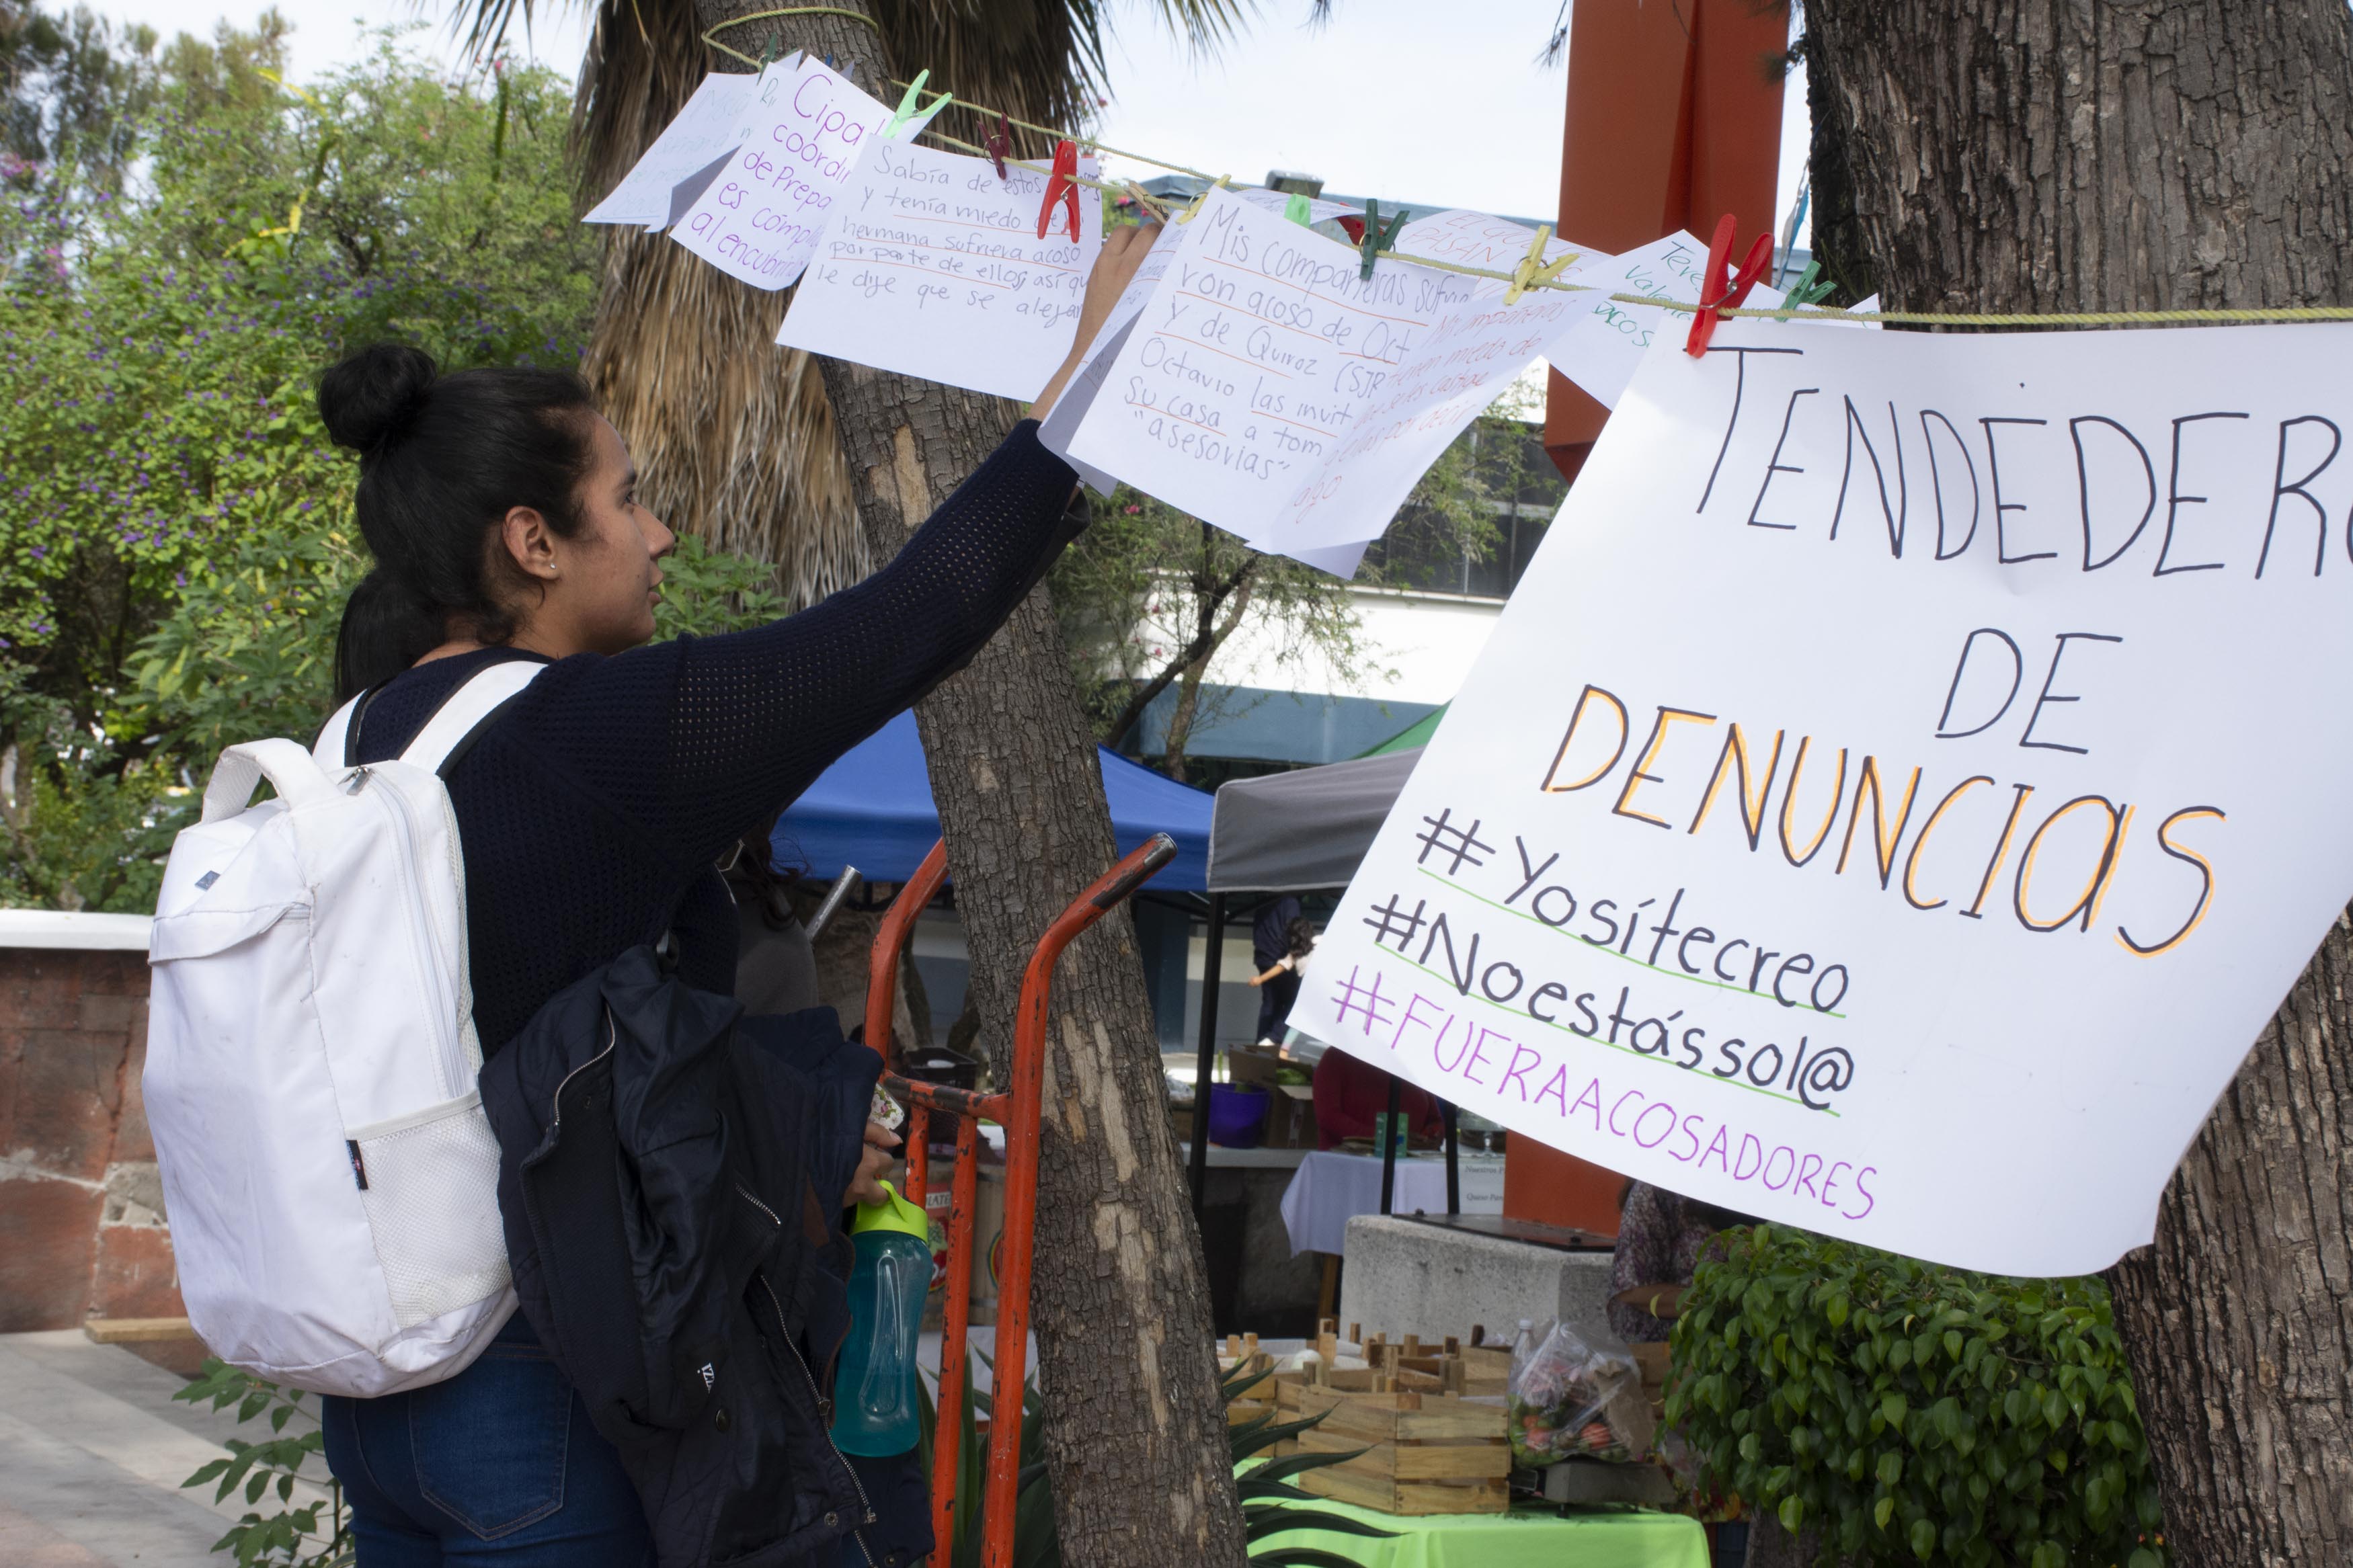 Cipa
coordi
de Prepa
es cómpl
al encubrir
Sabía de estos
y tenía miedo de
hermana sufriera acoso
por parte de ellos, así qu
le dije que se alejar
Mis compañeras sufrie
ron acoso de Oct
y de Quiroz (SJR
Octavio las invit
su casa a tom
"asesorías"
Mis compañeras
tienen miedo de
que se les castigue
a ellas por decir
algo
EL QUE
PASAN
TENDEDERO
DE
DENUNCIAS
#Yosítecreo
#Noestássol@
#FUERAACOSADORES